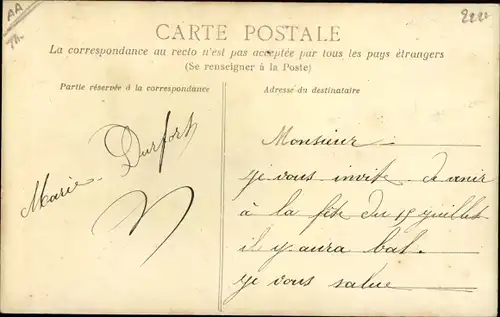 AA
CARTE POSTALE
La correspondance au recto n'est pas acceptée par tous les pays étrangers
(Se renseigner à la Poste)
Partie réservée à la correspondance
Adresse du destinataire
Marie Durfort
Monsieur
je vous invite de venir
à la fête du 15 juillet
il y aura bal.
je vous salue